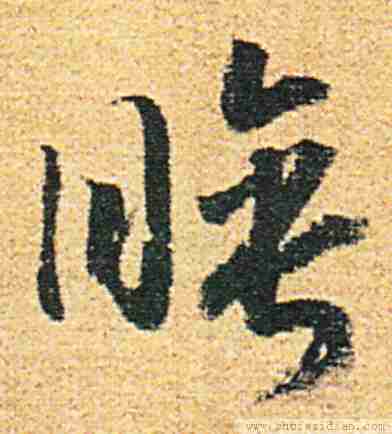 腹
www.shufazidian.com